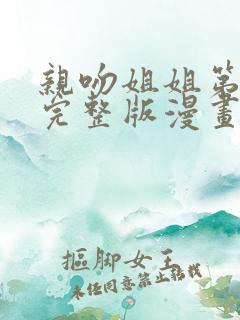 親吻姐姐第
完整版漫畫
摳脚女王
未经同意禁止转载